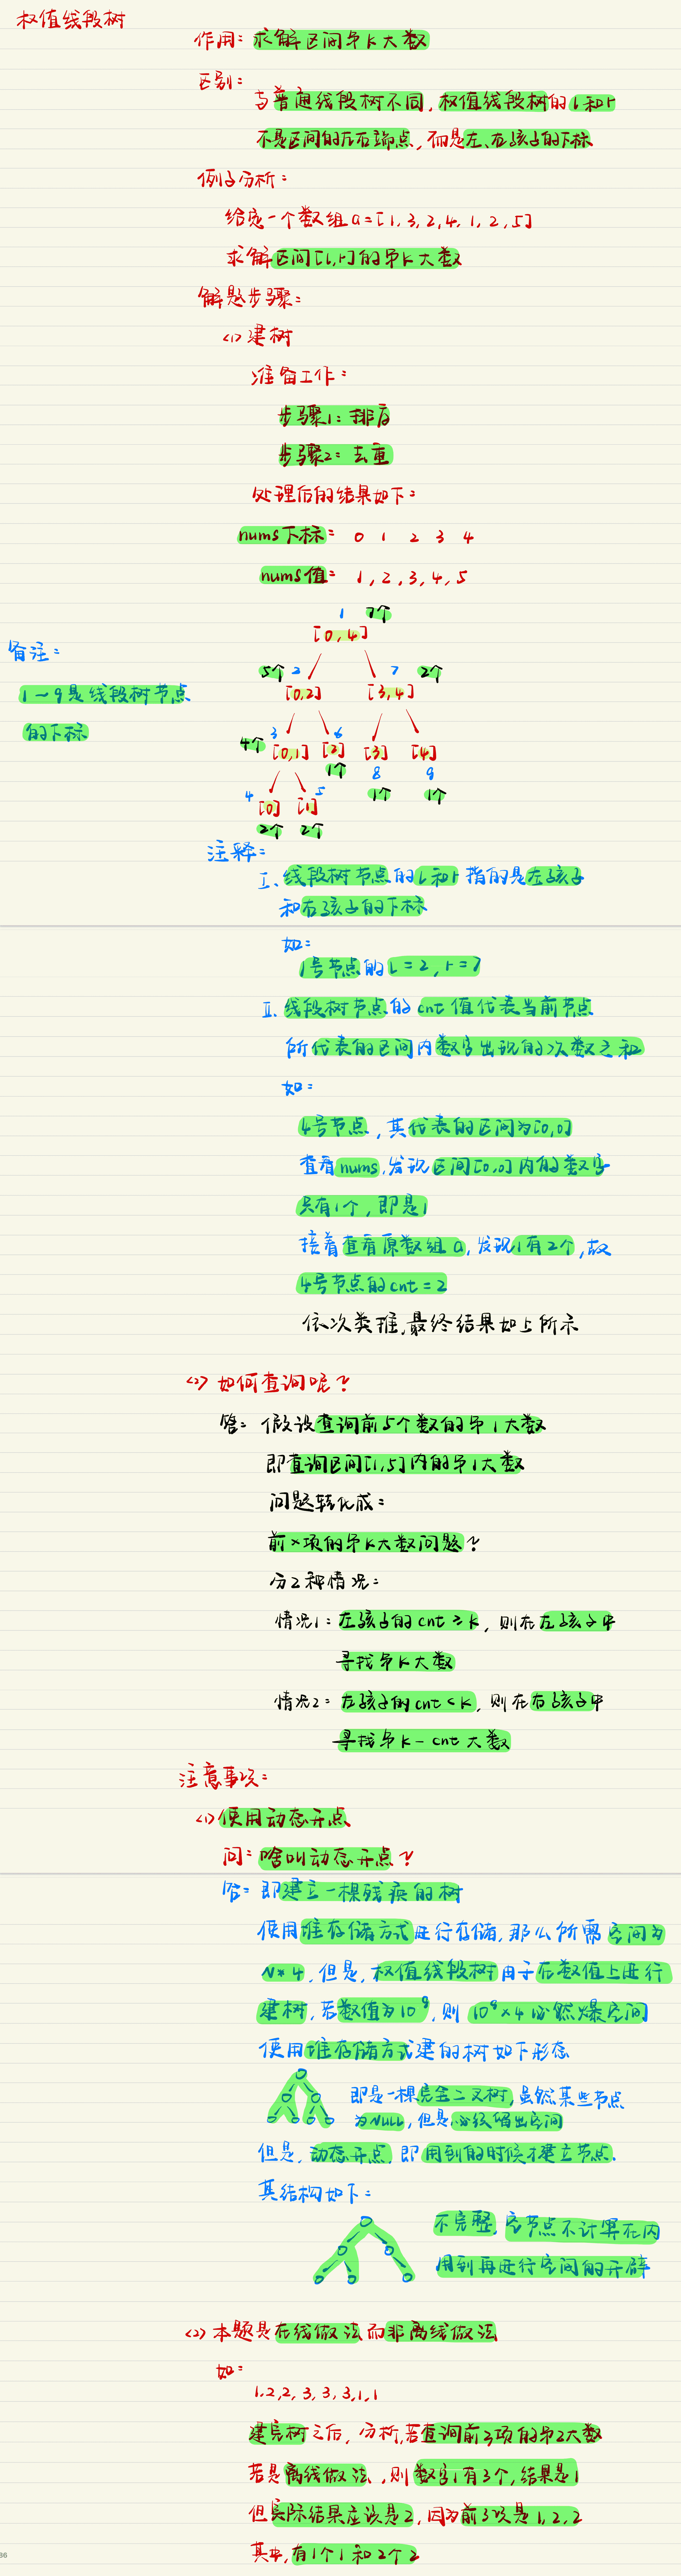 权值线段树
作用: 求解区间第k大数
区别:
与普通线段树不同, 权值线段树的l和r
不是区间的左右端点, 而是左、右孩子的下标
例子分析:
给定一个数组a=[1,3,2,4,1,2,5]
求解区间[l,r]的第k大数
解题步骤:
<1> 建树
准备工作:
步骤1: 排序
步骤2: 去重
处理后的结果如下:
nums下标: 0 1 2 3 4
nums值: 1,2,3,4,5
1 7个
[0,4]
备注:
5个 2 7 2个
1~9是线段树节点
[0,2] [3,4]
的下标
3 6
4个 [0,1] [2] [3] [4]
1个 8 9
4 5 1个 1个
[0] [1]
2个 2个
注释:
I. 线段树节点的l和r指的是左孩子
和右孩子的下标
如:
1号节点的l=2,r=7
II. 线段树节点的cnt值代表当前节点
所代表的区间内数字出现的次数之和
如:
4号节点,其代表的区间为[0,0]
查看nums,发现区间[0,0]内的数字
只有1个,即是1
接着查看原数组a,发现1有2个,故
4号节点的cnt=2
依次类推,最终结果如上所示
<2> 如何查询呢?
答: 假设查询前5个数的第1大数
即查询区间[1,5]内的第1大数
问题转化成:
前x项的第k大数问题?
分2种情况:
情况1: 左孩子的cnt≥k, 则在左孩子中
寻找第k大数
情况2: 左孩子的cnt<k, 则在右孩子中
寻找第k-cnt大数
注意事项:
<1> 使用动态开点
问: 啥叫动态开点?
答: 即建立一棵残疾的树
使用堆存储方式进行存储,那么所需空间为
N*4,但是,权值线段树用于在数值上进行
建树,若数值为10⁹,则 10⁹×4必然爆空间
使用堆存储方式建的树如下形态
即是一棵完全二叉树,虽然某些节点
为NULL,但是必须留出空间
但是,动态开点,即用到的时候才建立节点.
其结构如下:
不完整,空节点不计算在内
用到再进行空间的开辟
<2> 本题是在线做法而非离线做法
如:
1,2,2,3,3,3,1,1
建完树之后,分析,若查询前3项的第2大数
若是离线做法,则数字1有3个,结果是1
但实际结果应该是2,因为前3项是1,2,2
其中,有1个1和2个2